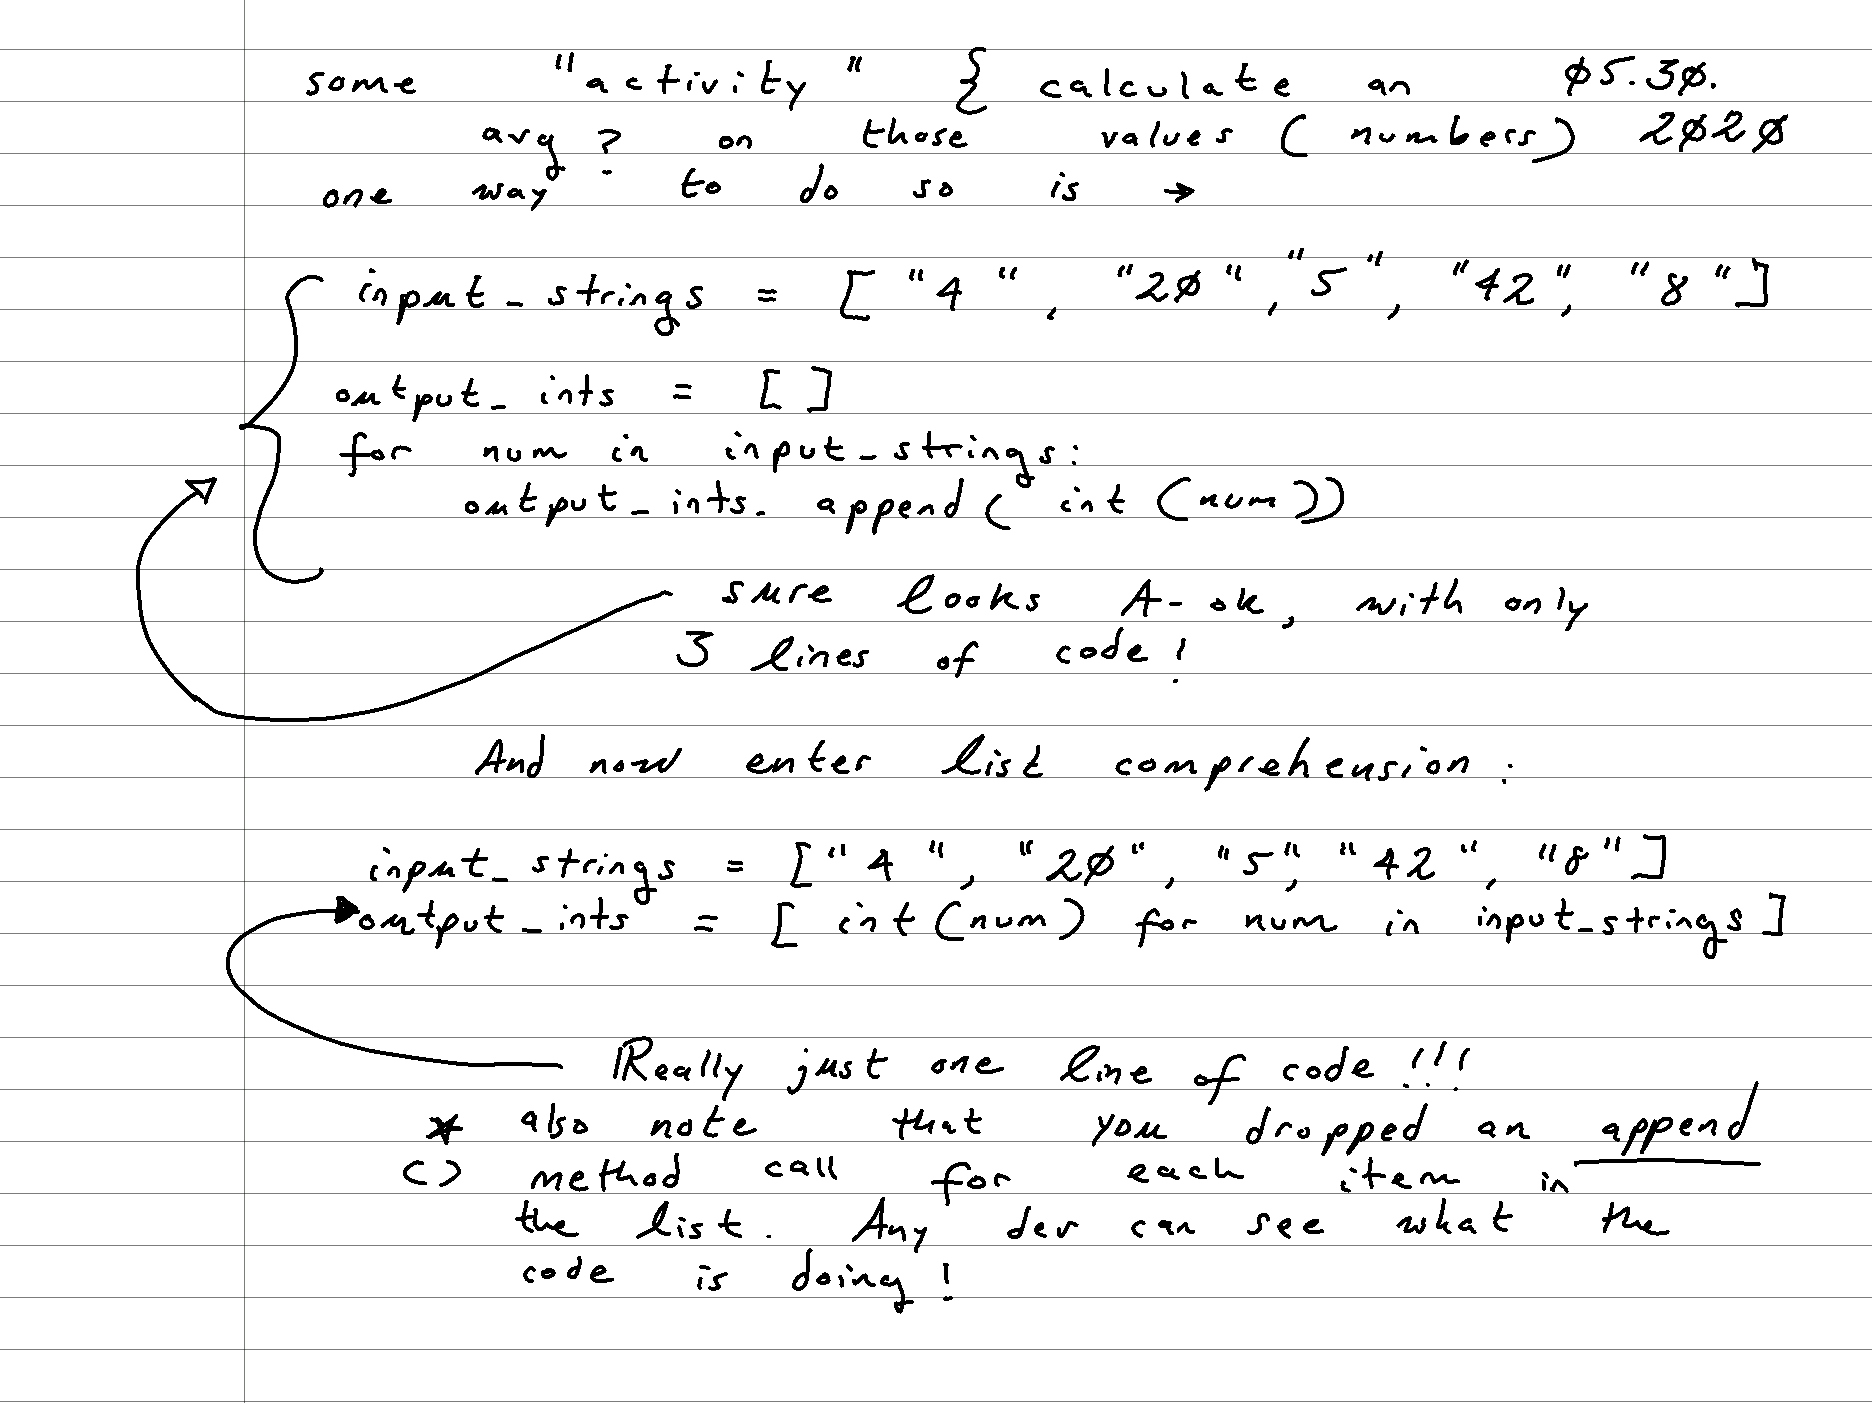 some "activity" { calculate an ø5.3ø.
avg? on those values (numbers) 2ø2ø
one way to do so is →
input_strings = ["4", "2ø", "5", "42", "8"]
output_ints = []
for num in input_strings:
output_ints.append(int(num))
sure looks A-ok, with only
3 lines of code!
And now enter list comprehension:
input_strings = ["4", "2ø", "5", "42", "8"]
output_ints = [int(num) for num in input_strings]
Really just one line of code!!!
* also note that you dropped an append
() method call for each item in
the list. Any dev can see what the
code is doing!